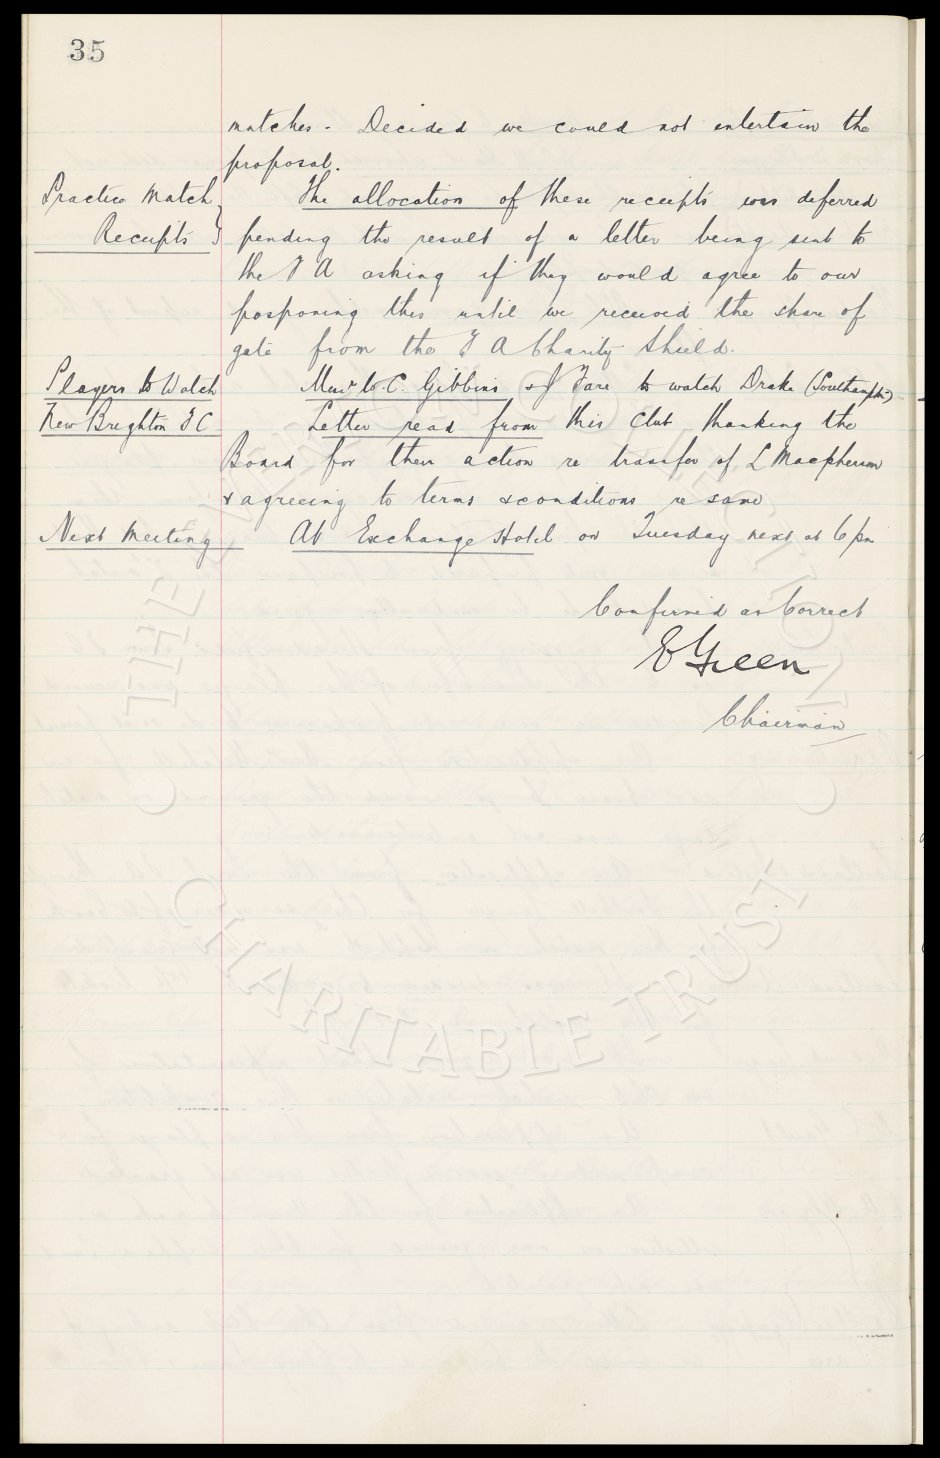 35
matches - Decided we could not entertain the
proposal.
Practice Match
Receipts
The allocation of these receipts was deferred
pending the result of a letter being sent to
the F A asking if they would agree to our
posponing this until we received the share of
gate from the F A Charity Shield.
Players to Watch
W. C. Gibbins & J Fare to watch Drake (Southampton)
New Brighton F C
Letter read from this Club thanking the
Board for their action re transfer of L Macpherson
& agreeing to terms & conditions re same
Next Meeting
At Exchange Hotel on Tuesday next at 6 pm
Confirmed as Correct
E Green
Chairman
THE COLLECTION
CHARITABLE TRUST